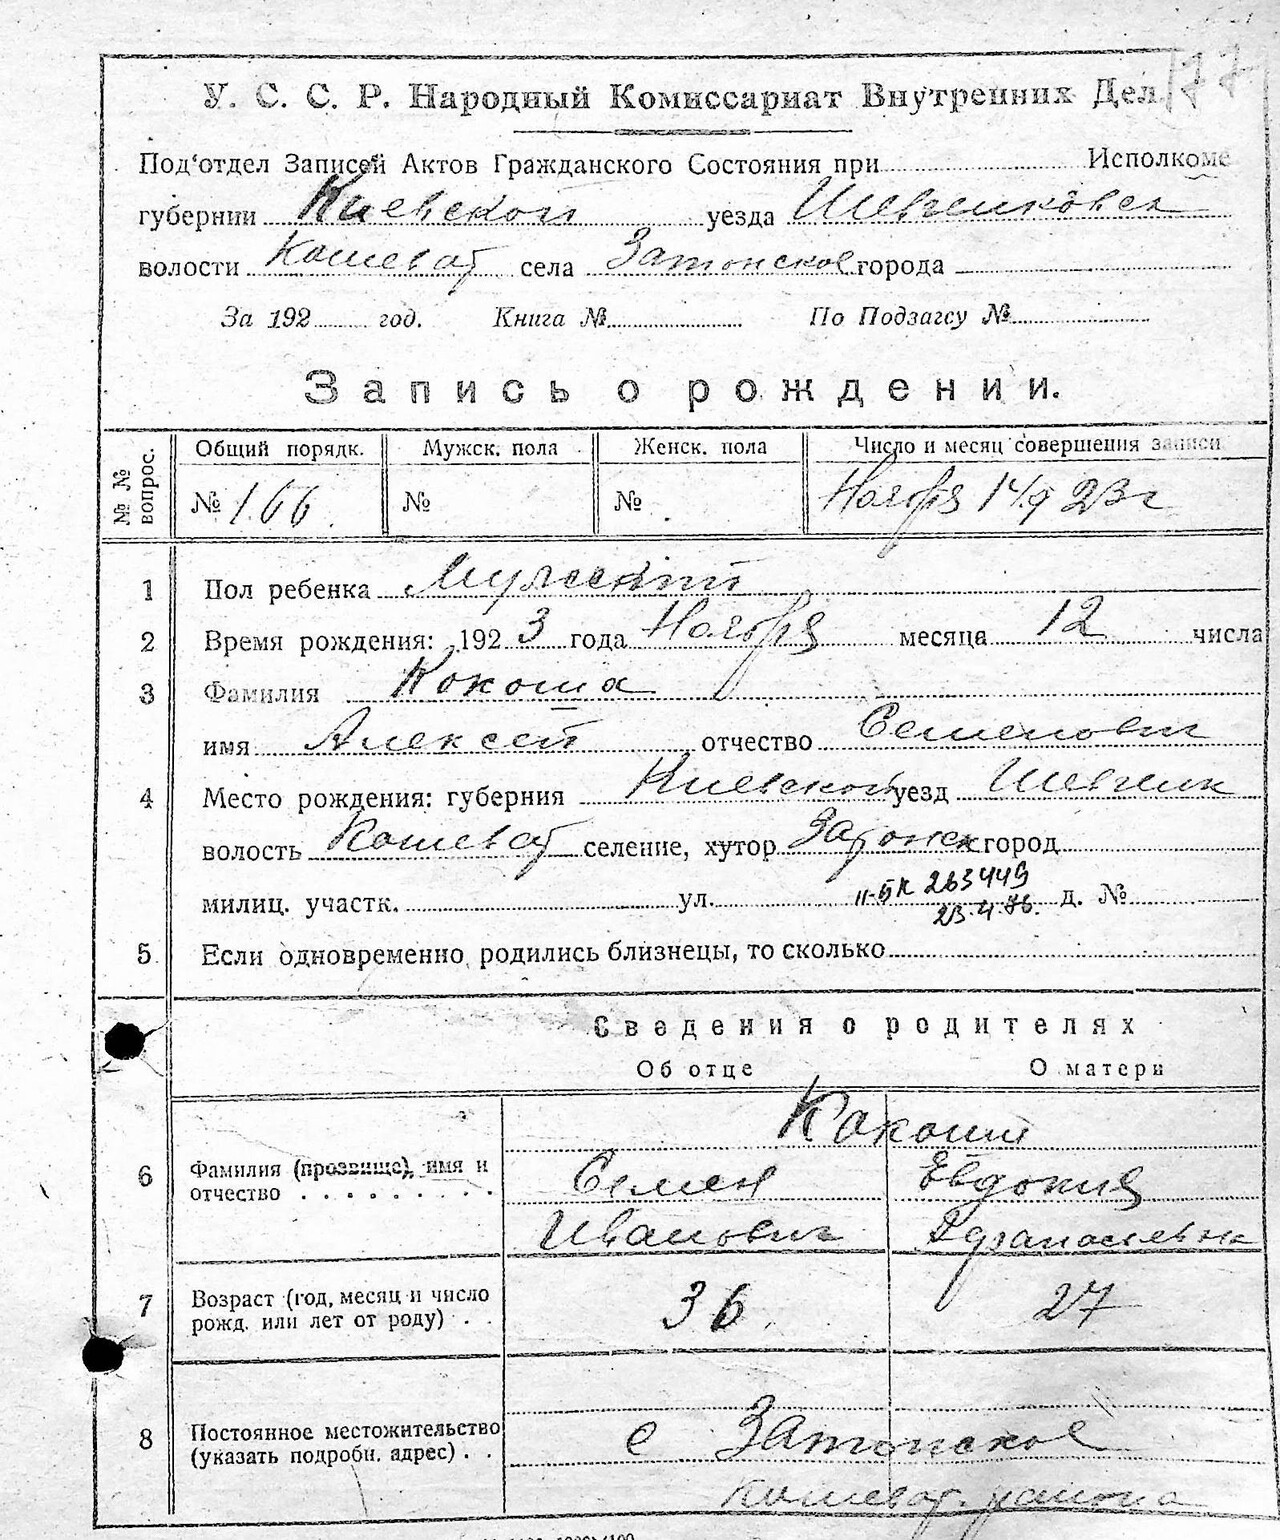 177
У. С. С. Р. Народный Комиссариат Внутренних Дел.
Под'отдел Записей Актов Гражданского Состояния при Исполкоме
губернии Киевской уезда Шевченковск
волости Кошеват села Затонское города
За 192 год. Книга № По Подзагсу №
Запись о рождении.
№№ вопрос. Общий порядк. Мужск. пола Женск. пола Число и месяц совершения записи
№ 166 № № Ноября 14 д 23 г
1 Пол ребенка Мужский
2 Время рождения: 192 3 года Ноября месяца 12 числа
3 Фамилия Кокоша
имя Алексей отчество Семенович
4 Место рождения: губерния Киевской уезд Шевченк
волость Кошеват селение, хутор Затонск город
милиц. участк. ул. II-БК 263449 д. №
23.4.86.
5 Если одновременно родились близнецы, то сколько
Сведения о родителях
Об отце О матери
Кокоши
6 Фамилия (прозвище), имя и Семен Евдокия
отчество Иванович Афанасиевна
7 Возраст (год, месяц и число 36 27
рожд. или лет от роду)
8 Постоянное местожительство с Затонское
(указать подробн. адрес)
Кошеват. района